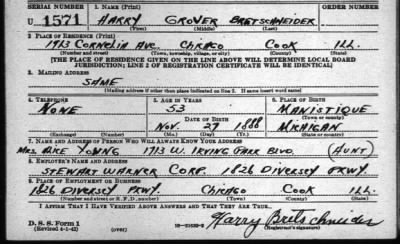 SERIAL NUMBER 1. NAME (Print) ORDER NUMBER
U 1571 HARRY GROVER BRETSCHNEIDER
(First) (Middle) (Last)
2. PLACE OF RESIDENCE (Print)
1913 CORNELIA AVE. CHICAGO COOK ILL.
(Number and street) (Town, township, village, or city) (County) (State)
[THE PLACE OF RESIDENCE GIVEN ON THE LINE ABOVE WILL DETERMINE LOCAL BOARD
JURISDICTION; LINE 2 OF REGISTRATION CERTIFICATE WILL BE IDENTICAL]
3. MAILING ADDRESS
SAME
[Mailing address if other than place indicated on line 2. If same insert word same]
4. TELEPHONE 5. AGE IN YEARS 6. PLACE OF BIRTH
NONE 53 MANISTIQUE
DATE OF BIRTH (Town or county)
NOV. 27 1888 MICHIGAN
(Exchange) (Number) (Mo.) (Day) (Yr.) (State or country)
7. NAME AND ADDRESS OF PERSON WHO WILL ALWAYS KNOW YOUR ADDRESS
MRS. YOUNG 1713 W. IRVING PARK BLVD. (AUNT)
8. EMPLOYER'S NAME AND ADDRESS
STEWART WARNER CORP. 1826 DIVERSEY PKWY.
9. PLACE OF EMPLOYMENT OR BUSINESS
1826 DIVERSEY PKWY. CHICAGO COOK ILL.
(Number and street or R. F. D. number) (Town) (County) (State)
I AFFIRM THAT I HAVE VERIFIED ABOVE ANSWERS AND THAT THEY ARE TRUE.
D. S. S. Form 1 Harry Bretschneider
(Revised 4-1-42) (over) (Registrant's signature)